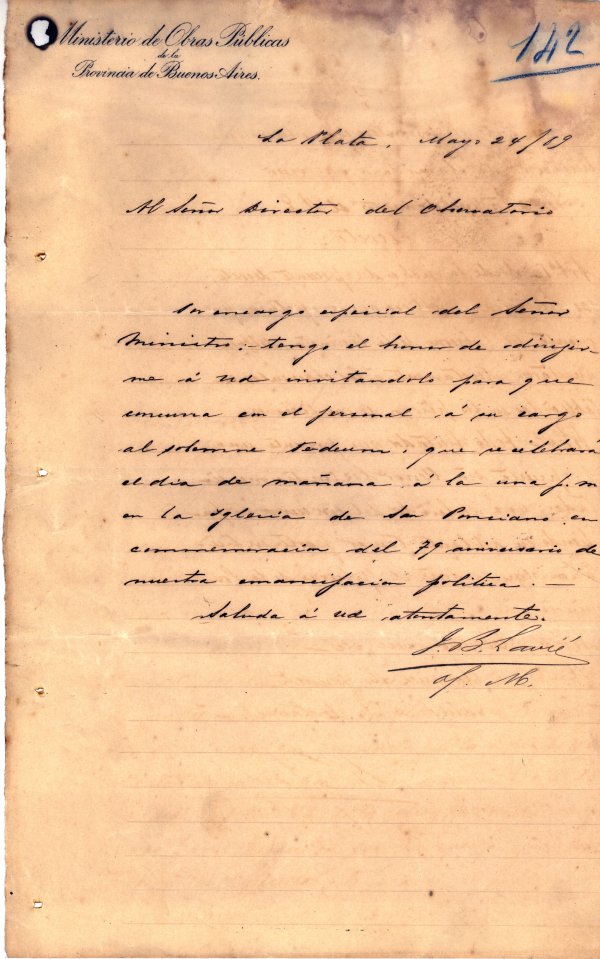 Ministerio de Obras Públicas
de la
Provincia de Buenos Aires.
142
La Plata, Mayo 24/89
Al Señor Director del Observatorio
Por encargo especial del Señor
Ministro; tengo el honor de dirijir-
me á Ud invitandolo para que
concurra con el personal á su cargo
al solemne tedeum, que se celebrará
el dia de mañana á la una p.m
en la Iglesia de San Ponciano en
commemoracion del 79 aniversario de
nuestra emancipacion politica. —
Saluda á Ud atentamente.
J. B. Lavié
O. M.